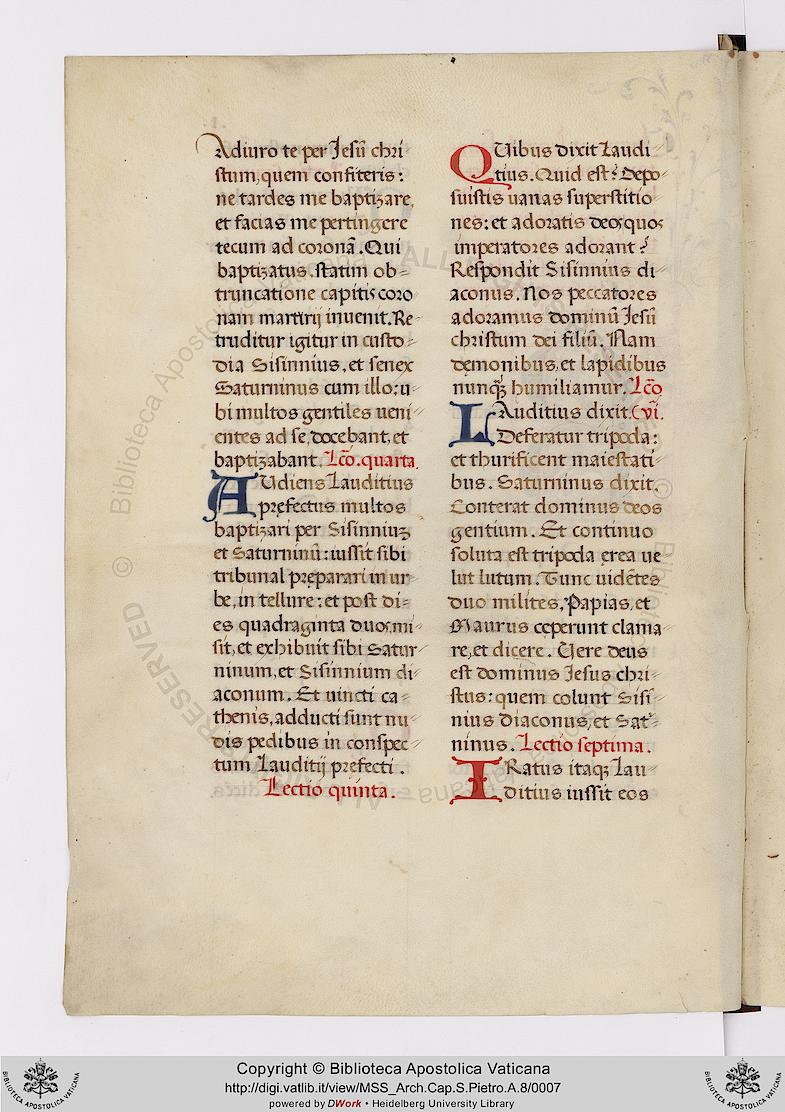 Adiuro te per Jesū chri-
stum, quem confiteris:
ne tardes me baptizare,
et facias me pertingere
tecum ad coronā. Qui
baptizatus, statim ob-
truncatione capitis coro
nam martirij invenit. Re-
truditur igitur in custo-
dia Sisinnius, et senex
Saturninus cum illo: u-
bi multos gentiles ueni-
entes ad se, docebant, et
baptizabant. Lc̄o. quarta.
AUdiens Lauditius
pręfectus multos
baptizari per Sisinniuꝫ
et Saturninū: iussit sibi
tribunal pręparari in ur-
be, in tellure: et post di-
es quadraginta duos, mi-
sit, et exhibuit sibi Satur-
ninum, et Sisinnium di-
aconum. Et uincti ca-
thenis, adducti sunt nu-
dis pedibus in conspec-
tum Lauditij prefecti.
Lectio quinta.
QUibus dixit Laudi-
tius. Quid est? Depo-
suistis uanas superstitio-
nes: et adoratis deos, quos
imperatores adorant?
Respondit Sisinnius di-
aconus. Nos peccatores
adoramus dominū Jesū
christum dei filiū. Nam
demonibus, et lapidibus
nunqꝫ humiliamur. Lc̄o
LAuditius dixit. (vi.
Deferatur tripoda:
et thurificent maiestati-
bus. Saturninus dixit.
Conterat dominus deos
gentium. Et continuo
soluta est tripoda ęrea ue
lut lutum. Tunc uidētes
duo milites, Papias, et
Maurus cęperunt clama-
re, et dicere. Uere deus
est dominus Jesus chri-
stus: quem colunt Sisi-
nius diaconus, et Sat-
ninus. Lectio septima.
IRatus itaqꝫ Lau-
ditius iussit eos
© Biblioteca Apostolica Vaticana
ALL RIGHTS RESERVED
BIBLIOTECA APOSTOLICA VATICANA
Copyright © Biblioteca Apostolica Vaticana
http://digi.vatlib.it/view/MSS_Arch.Cap.S.Pietro.A.8/0007
powered by DWork • Heidelberg University Library
BIBLIOTECA APOSTOLICA VATICANA